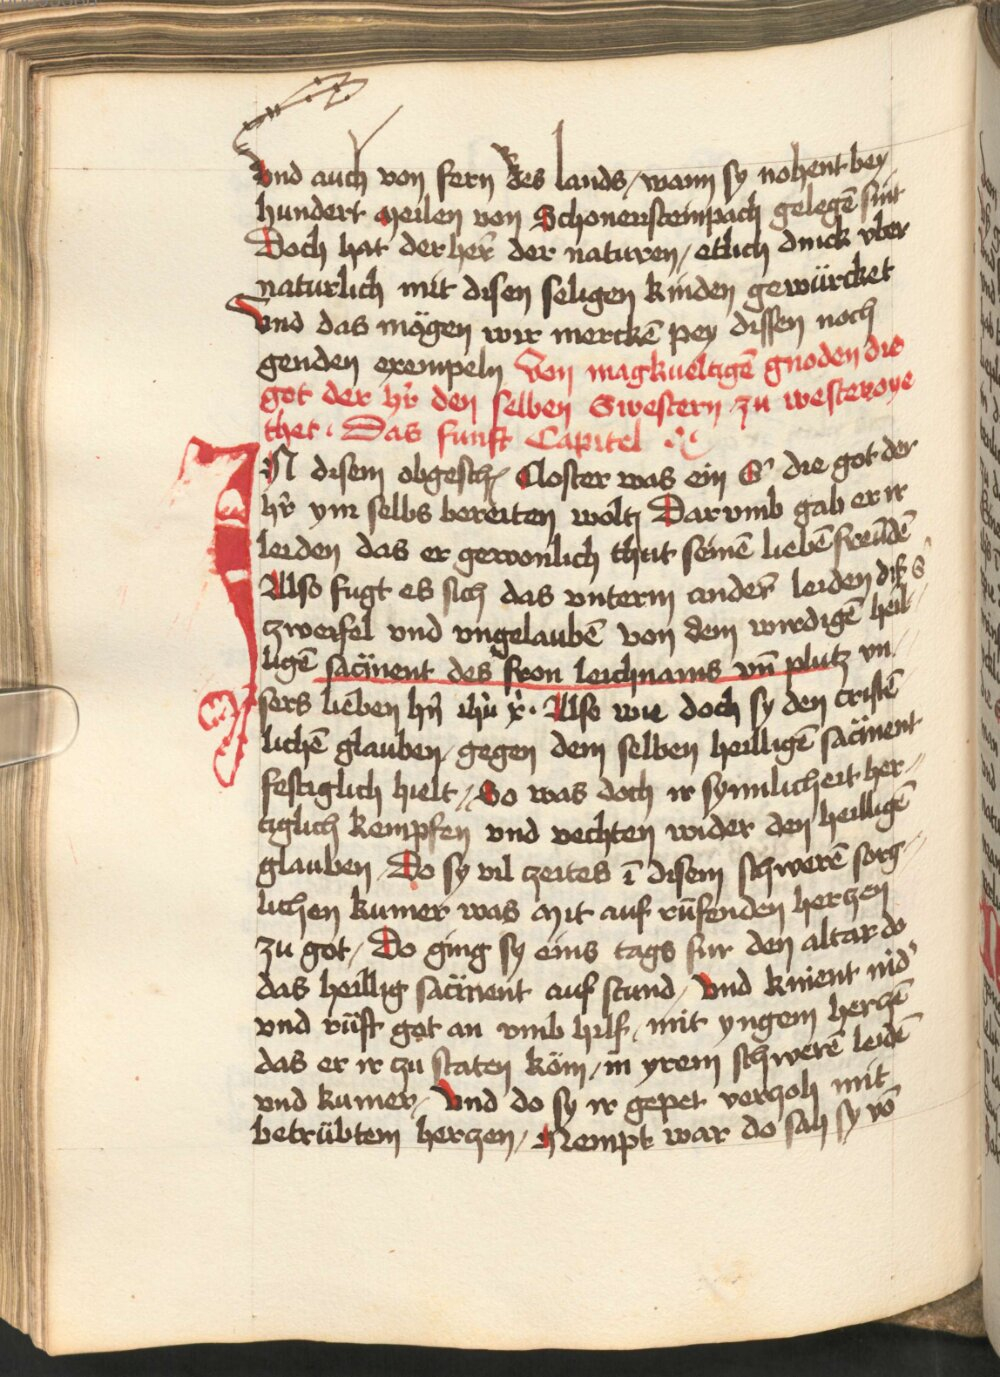 Vnd auch von fern des lands / wann sy nohent bey
hundert meilen von Schonensteinpach gelegē sint
Doch hat der her̄ der naturen / etlich dinck vber
naturlich mit disen seligen kinden gewürcket
Vnd das mögen wir merckē pey dissen noch
genden exempeln Von magkueltigē gnoden die
got der hr̄ den selben Swestern zu westeroye
thet · Das funft Capitel ·
IN disem obgesch̄ Closter was ein S' die got der
hr̄ ym selbs bereiten wolt Dar vmb gab er ir
leiden das er gewonlich thut seinē liebē freūdē
Also fugt es sich das vnterm ander̄ leiden diß S'
zweifel vnd vngelaubē von dem wirdigē heil-
ligē sac̄ment des fron leichnams vn̄ plutz vn-
sers lieben hr̄n ih̄u x̄ · Also wie doch sy den cristē
lichē glauben / gegen dem selben heilligē sac̄ment
festiglich hielt / So was doch ir synnlicheit her-
tiglich kempfen vnd vechten wider den heilligē
glauben / Do sy vil zeites ī disem schwerē sorg-
lichen kumer was Mit auf rüfenden herczen
zu got / Do ging sy eins tags fur den altar do
das heillig sac̄ment auf stund / Vnd knient nid'
vnd rüft got an vmb hilf / mit yngem herczē
das er ir zu staten köm / in yrem schwerē leidē
vnd kumer / Vnd do sy ir gepet verzoh mit
betrübtem herczen / Nempt war do sah sy vō